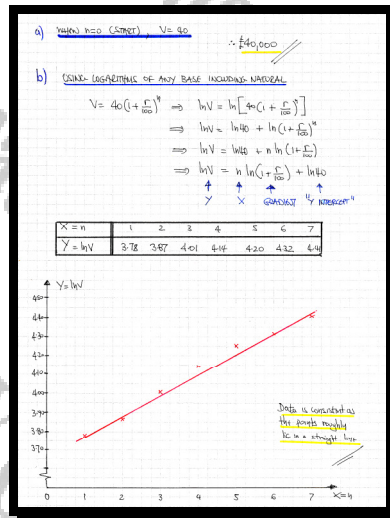 a) WHEN n=0 (START), V= 40
∴ £40,000
b) USING LOGARITHMS OF ANY BASE INCLUDING NATURAL
V= 40(1 + r/100)^n ⇒ lnV = ln[40(1 + r/100)^n]
⇒ lnV = ln40 + ln(1 + r/100)^n
⇒ lnV = ln40 + n ln(1 + r/100)
⇒ lnV = n ln(1 + r/100) + ln40
Y X GRADIENT "Y INTERCEPT"
X = n 1 2 3 4 5 6 7
Y = lnV 3.78 3.87 4.01 4.14 4.20 4.32 4.41
Y = lnV
4.40
4.30
4.20
4.10
4.00
3.90
3.80
3.70
Data is consistent as
the points roughly
lie in a straight line
0 1 2 3 4 5 6 7 X=n